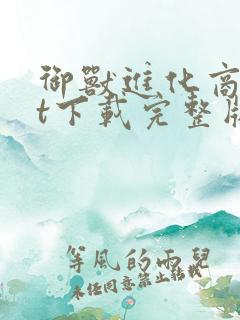 御獸進化商
t下載完整版
等風的雨兒
未经同意禁止转载